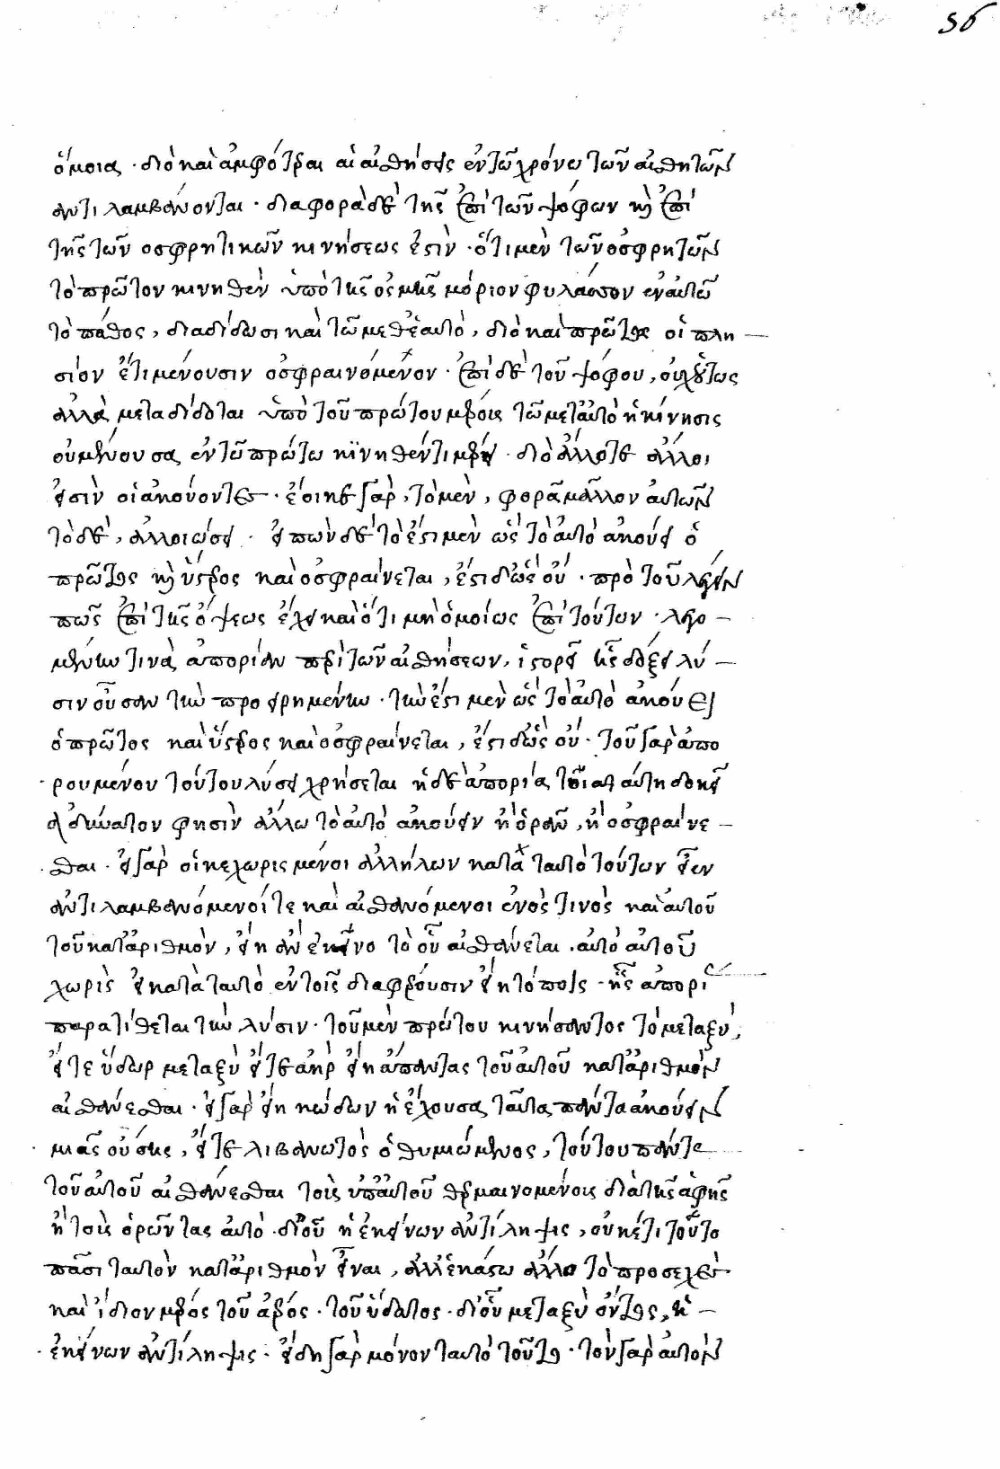 56
ὅμοια · διὸ καὶ ἀμφότεραι αἱ αἰσθήσεις ἐν τῶ χρόνω τῶν αἰσθητῶν
ἀντιλαμβάνονται · διαφορὰ δὲ τῆς ἐπὶ τῶν ψόφων καὶ ἐπὶ
τῆς τῶν οσφρητικῶν κινήσεως ἐστὶν · ὅτι μὲν τῶν οσφρητῶν
τὸ πρῶτον κινηθὲν ὑπὸ τῆς ὀσμῆς μόριον φυλάσσον ἐν αὐτῶ
τὸ πάθος, διαδίδωσι καὶ τῶ μεθ' ἑαυτὸ, διὸ καὶ πρῶτος οἱ πλη
σίον ἔτι μένουσιν οσφραινόμενον · ἐπὶ δὲ τοῦ ψόφου, οὐχ οὕτως
ἀλλὰ μεταδίδοται ὑπὸ τοῦ πρώτου μέρους τῶ μετ' αὐτὸ ἡ κίνησις
οὐ μένουσα ἐν τῶ πρώτω κϊνηθέντι μέρει · διὸ ἄλλοτε ἄλλοι
εἰσὶν οἱ ἀκούοντες · ἔοικε γὰρ, τὸ μὲν, φορᾶ μᾶλλον αὐτῶν
τὸ δὲ, ἀλλοιώσει · εἰπὼν δὲ τὸ ἔστι μὲν ὡς τὸ αὐτὸ ἀκούει ὁ
πρῶτος καὶ ὕστερος καὶ οσφραίνεται, ἔστι δ' ὡς οὔ · πρὸ τοῦ λέγειν
πῶς ἐπὶ τῆς ὄψεως ἔχει καὶ ὅτι μὴ ὁμοίως ἐπὶ τούτων · λεγο
μένην τινὰ ἀπορίαν περὶ τῶν αἰσθήσεων, ἱστορεῖ τῆς δόξει λύ
σιν οὖσαν τὴν προειρημένην · τὴν ἔστι μὲν ὡς τὸ αὐτὸ ἀκούει
ὁ πρῶτος καὶ ὕστερος καὶ οσφραίνεται, ἔστι δ' ὡς οὔ · τοῦ γὰρ ἀπο
ρουμένου τούτου λύσει χρήσεται ἡ δὲ ἀπορία τοιαύτη δοκεῖ
ἀδύνατον φησὶν ἄλλω τὸ αὐτὸ ἀκούειν ἢ ὁρᾶν, ἢ οσφραίνε
σθαι · εἰ γὰρ οἱ κεχωρισμένοι ἀλλήλων κατὰ ταυτὸ τούτων εἶεν
ἀντιλαμβανόμενοί τε καὶ αἰσθανόμενοι ἑνὸς τινὸς καὶ αὐτοῦ
τοῦ κατ' ἀριθμὸν, εἴη ἂν ἐκεῖνο τὸ οὗ αἰσθάνεται αὐτὸ αὑτοῦ
χωρὶς εἰ κατὰ ταυτὸ ἐν τοῖς διαφέρουσιν εἴη τόποις · ἧς ἀπορί
παρατίθεται τὴν λύσιν · τοῦ μὲν πρώτου κινήσαντος τὸ μεταξὺ,
εἴτε ὕδωρ μεταξὺ εἴτε ἀὴρ εἴη ἅπαντας τοῦ αὐτοῦ κατ' ἀριθμὸν
αἰσθάνεσθαι · εἰ γὰρ εἴη κώδων ἡ ἔχουσα ταῦτα πάντα ἀκούειν
μιᾶς οὔσης, εἴτε λιβανωτὸς ὁ θυμιώμενος, τούτου πάντας
τοῦ αὐτοῦ αἰσθάνεσθαι τοῖς ὑπ' αὐτοῦ θερμαινομένοις διὰ τῆς ἁφῆς
ἢ τοὺς ὁρῶντας αὐτό · δι' οὗ ἡ ἐκείνων ἀντίληψις, οὐκέτι τοῦτο
πᾶσι ταυτὸν κατ' ἀριθμὸν εἶναι, ἀλλ' ἑκάστω ἄλλο τὸ προσεχὲς
καὶ ἴδιον μέρος τοῦ ἀέρος · τοῦ ὕδατος · δι' οὗ μεταξὺ ὄντος, ἡ
ἐκείνων ἀντίληψις · εἴδη γὰρ μόνον ταυτὸ τοῦτο · τὸν γὰρ αὐτὸν